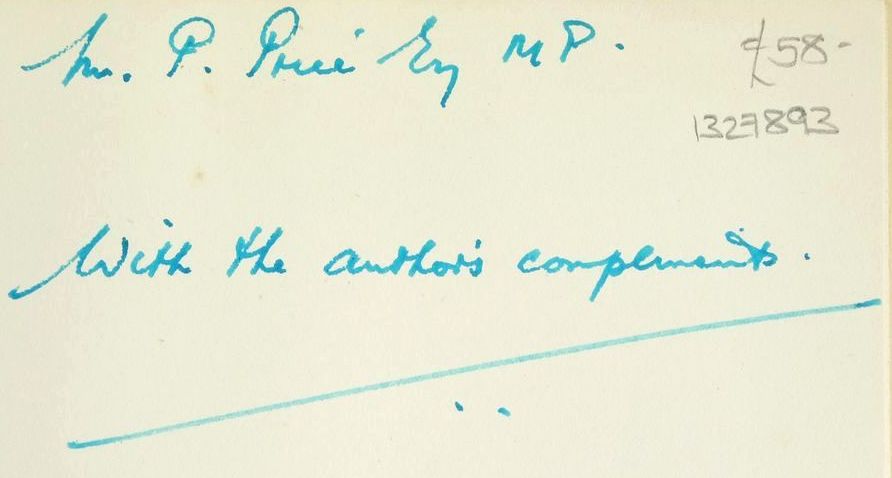 M. P. Price Esq MP.
£58-
1327893
With the author's compliments.